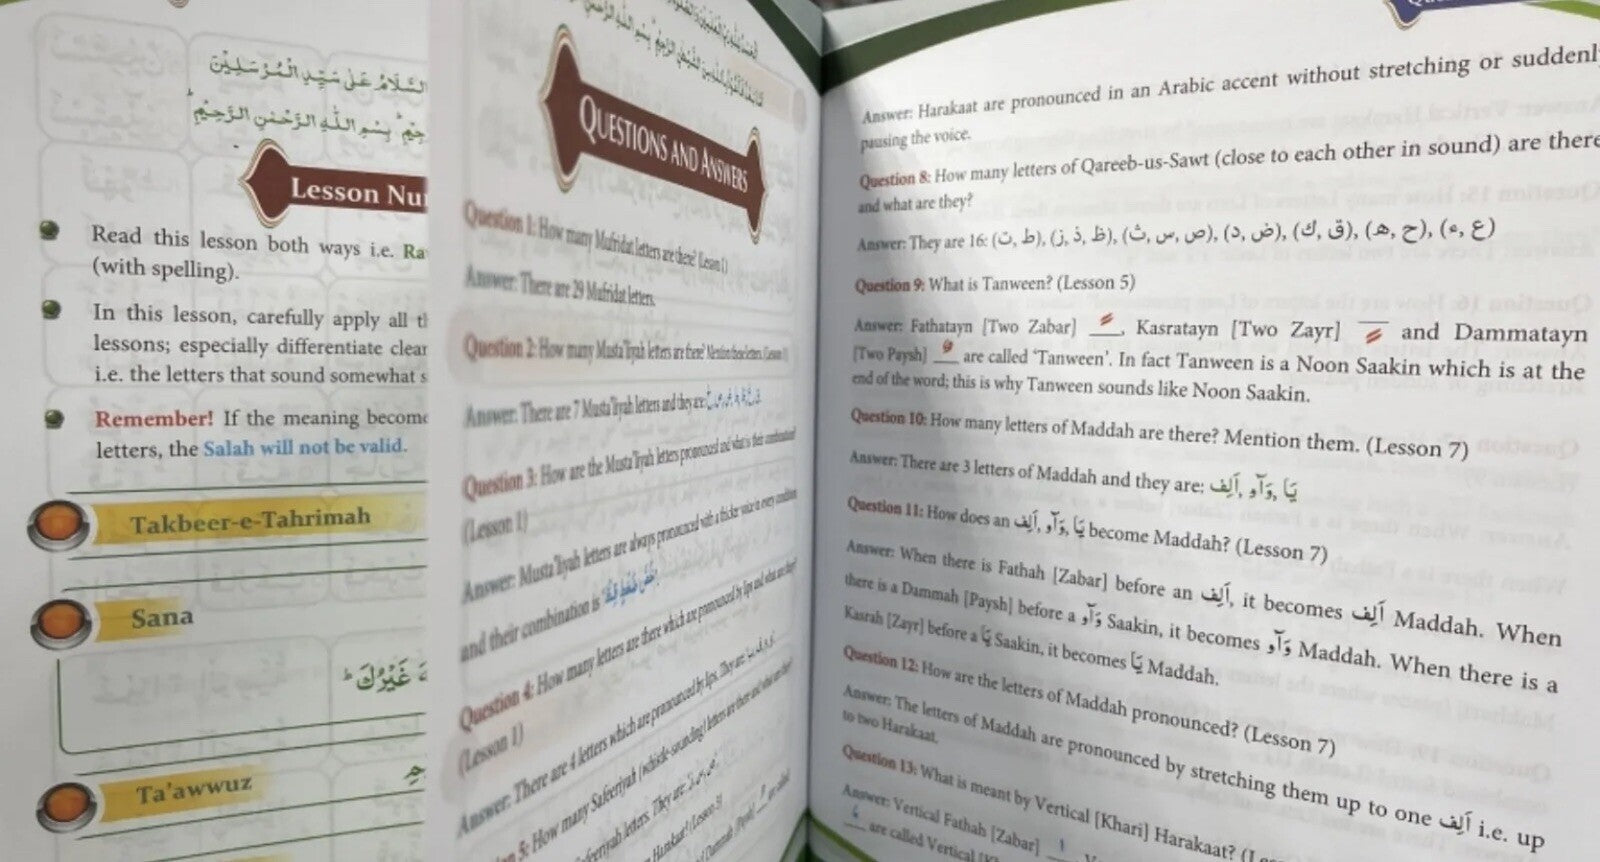 السَّلَامُ عَلٰى سَيِّدِ الْمُرْسَلِيْنَ
بِسْمِ اللّٰهِ الرَّحْمٰنِ الرَّحِيْمِ
Lesson Nu
Read this lesson both ways i.e. Ra
(with spelling).
In this lesson, carefully apply all th
lessons; especially differentiate clear
i.e. the letters that sound somewhat s
Remember! If the meaning become
letters, the Salah will not be valid.
Takbeer-e-Tahrimah
Sana
غَيْرُكَ
Ta'awwuz
QUESTIONS AND ANSWERS
Question 1: How many Mufridat letters are there? (Lesson 1)
Answer: There are 29 Mufridat letters.
Question 2: How many Musta'liyah letters are there? Mention these letters. (Lesson 1)
Answer: There are 7 Musta'liyah letters and they are:
Question 3: How are the Musta'liyah letters pronounced and what is their combination?
(Lesson 1)
Answer: Musta'liyah letters are always pronounced with a thicker voice in every condition
and their combination is
Question 4: How many letters are there which are pronounced by lips and what are they?
(Lesson 1)
Answer: There are 4 letters which are pronounced by lips. They are:
5: How many Safeeriyah (whistle-sounding) letters are there and what are they?
letters. They are:
Answer: Harakaat are pronounced in an Arabic accent without stretching or suddenly
pausing the voice.
Question 8: How many letters of Qareeb-us-Sawt (close to each other in sound) are there
and what are they?
Answer: They are 16: (ت, ط), (ز, ذ, ظ), (ث, س, ص), (د, ض), (ك, ق), (ه, ح), (ء, ع)
Question 9: What is Tanween? (Lesson 5)
Answer: Fathatayn [Two Zabar] ً, Kasratayn [Two Zayr] ٍ and Dammatayn
[Two Paysh] ٌ are called 'Tanween'. In fact Tanween is a Noon Saakin which is at the
end of the word; this is why Tanween sounds like Noon Saakin.
Question 10: How many letters of Maddah are there? Mention them. (Lesson 7)
Answer: There are 3 letters of Maddah and they are: اَلِف, وَآو, يَا
Question 11: How does an اَلِف, وَآو, يَا become Maddah? (Lesson 7)
Answer: When there is Fathah [Zabar] before an اَلِف, it becomes اَلِف Maddah. When
there is a Dammah [Paysh] before a وَآو Saakin, it becomes وَآو Maddah. When there is a
Kasrah [Zayr] before a يَا Saakin, it becomes يَا Maddah.
Question 12: How are the letters of Maddah pronounced? (Lesson 7)
Answer: The letters of Maddah are pronounced by stretching them up to one اَلِف i.e. up
to two Harakaat.
Question 13: What is meant by Vertical [Khari] Harakaat?
Answer: Vertical Fathah [Zabar]
are called Vertical